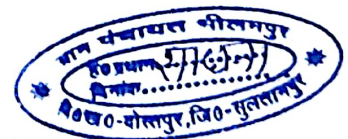 ग्राम पंचायत भीलमपुर
ह० प्रधान
दिनांक..............
वि०ख०-दोस्तपुर,जि०-सुलतानपुर